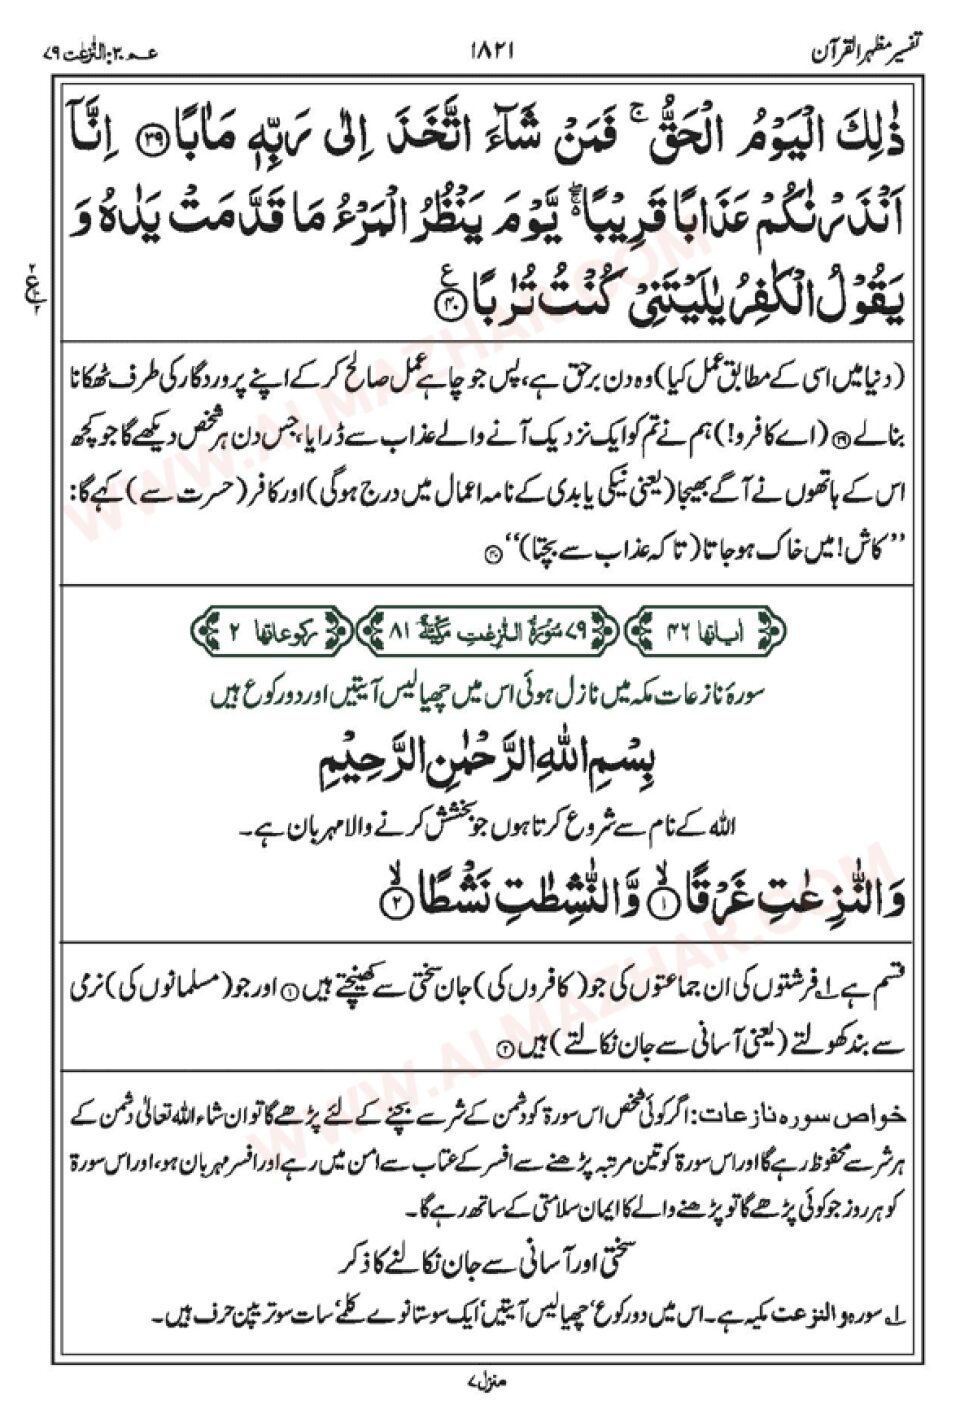 تفسیر مظہر القرآن
۱۸۲۱
عـم ۳۰: النّٰزعٰت ۷۹
ذٰلِكَ الْیَوْمُ الْحَقُّ ۚ فَمَنْ شَآءَ اتَّخَذَ اِلٰی رَبِّهٖ مَاٰبًا ﴿۳۹﴾ اِنَّاۤ
اَنْذَرْنٰكُمْ عَذَابًا قَرِیْبًا ۖۚ۬ یَّوْمَ یَنْظُرُ الْمَرْءُ مَا قَدَّمَتْ یَدٰهُ وَ
یَقُوْلُ الْكٰفِرُ یٰلَیْتَنِیْ كُنْتُ تُرٰبًا ﴿۴۰﴾ ع
۲ ع ۲
(دنیا میں اسی کے مطابق عمل کیا) وہ دن برحق ہے، پس جو چاہے عمل صالح کر کے اپنے پروردگار کی طرف ٹھکانا
بنالے ﴿۳۹﴾ (اے کافرو!) ہم نے تم کو ایک نزدیک آنے والے عذاب سے ڈرایا، جس دن ہر شخص دیکھے گا جو کچھ
اس کے ہاتھوں نے آگے بھیجا (یعنی نیکی یا بدی کے نامہ اعمال میں درج ہوگی) اور کافر (حسرت سے) کہے گا:
’’کاش! میں خاک ہو جاتا (تا کہ عذاب سے بچتا)‘‘ ﴿۴۰﴾
اٰیاتھا ۴۶
۷۹ سُوْرَۃُ النّٰزِعٰتِ مَکِّیَّۃٌ ۸۱
رکوعاتھا ۲
سورۂ نازعات مکہ میں نازل ہوئی اس میں چھیالیس آیتیں اور دو رکوع ہیں
بِسْمِ اللّٰهِ الرَّحْمٰنِ الرَّحِیْمِ
اللہ کے نام سے شروع کرتا ہوں جو بخشش کرنے والا مہربان ہے۔
وَالنّٰزِعٰتِ غَرْقًا ۙ﴿۱﴾ وَّالنّٰشِطٰتِ نَشْطًا ۙ﴿۲﴾
قسم ہے ۱؎ فرشتوں کی ان جماعتوں کی جو (کافروں کی) جان سختی سے کھینچتے ہیں ﴿۱﴾ اور جو (مسلمانوں کی) نرمی
سے بند کھولتے (یعنی آسانی سے جان نکالتے) ہیں ﴿۲﴾
خواص سورہ نازعات: اگر کوئی شخص اس سورۃ کو دشمن کے شر سے بچنے کے لئے پڑھے گا تو ان شاء اللہ تعالیٰ دشمن کے
ہر شر سے محفوظ رہے گا اور اس سورۃ کو تین مرتبہ پڑھنے سے افسر کے عتاب سے امن میں رہے اور افسر مہربان ہو، اور اس سورۃ
کو ہر روز جو کوئی پڑھے گا تو پڑھنے والے کا ایمان سلامتی کے ساتھ رہے گا۔
سختی اور آسانی سے جان نکالنے کا ذکر
۱؎ سورہ والنزعت مکیہ ہے۔ اس میں دو رکوع‘ چھیالیس آیتیں‘ ایک سو ستانوے کلمے‘ سات سو تریپن حرف ہیں۔
منزل ۷
WWW.ALMAZHAR.COM
WWW.ALMAZHAR.COM